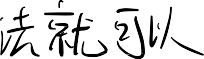 法就可以